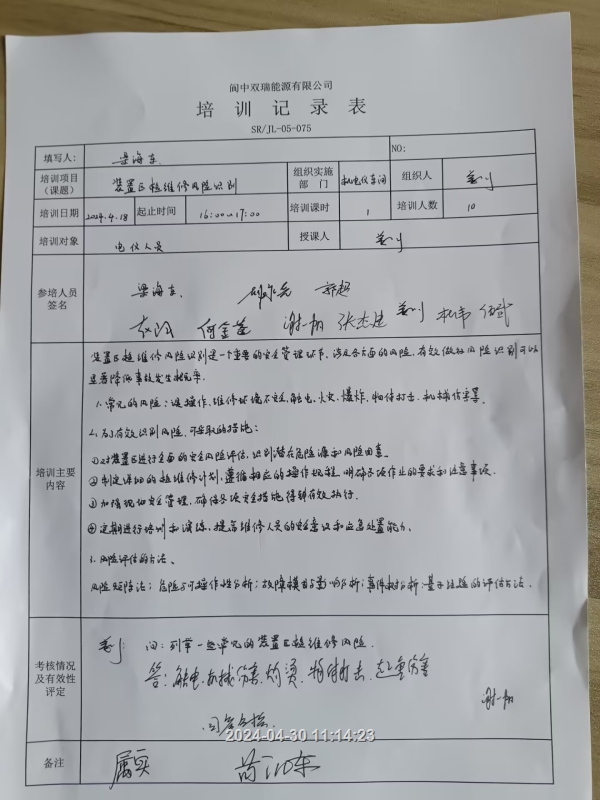 阆中双瑞能源有限公司
培训记录表
SR/JL-05-075
填写人： 梁海东 NO:
培训项目（课题） 装置区检维修风险识别 组织实施部门 机电仪车间 组织人
培训日期 2024.4.18 起止时间 16:00~17:00 培训课时 1 培训人数 10
培训对象 电仪人员 授课人
参培人员签名 梁海东 郭超
何金莲 谢一相 张杰建 杜韦 伍武
培训主要内容
装置区检维修风险识别是一个重要的安全管理环节，涉及各方面的风险，有效做好风险识别可以
显著降低事故发生概率。
1、常见的风险：误操作、维修环境不安全、触电、火灾、爆炸、物体打击、机械伤害等
2、为有效识别风险，可采取的措施：
①对装置区进行全面的安全风险评估，识别潜在危险源和风险因素。
②制定详细的检维修计划，遵循相应的操作规程，明确各项作业的要求和注意事项。
③加强现场安全管理，确保各项安全措施得到有效执行。
④定期进行培训和演练，提高维修人员的安全意识和应急处置能力。
3、风险评估的方法、
风险矩阵法；危险与可操作性分析；故障模式与影响分析；事件树分析；基于经验的评估方法。
考核情况及有效性评定
问：列举一些常见的装置区检维修风险。
答：触电、机械伤害、灼烫、物体打击、起重伤害
谢一相
回答合格
2024-04-30 11:14:23
备注 属实